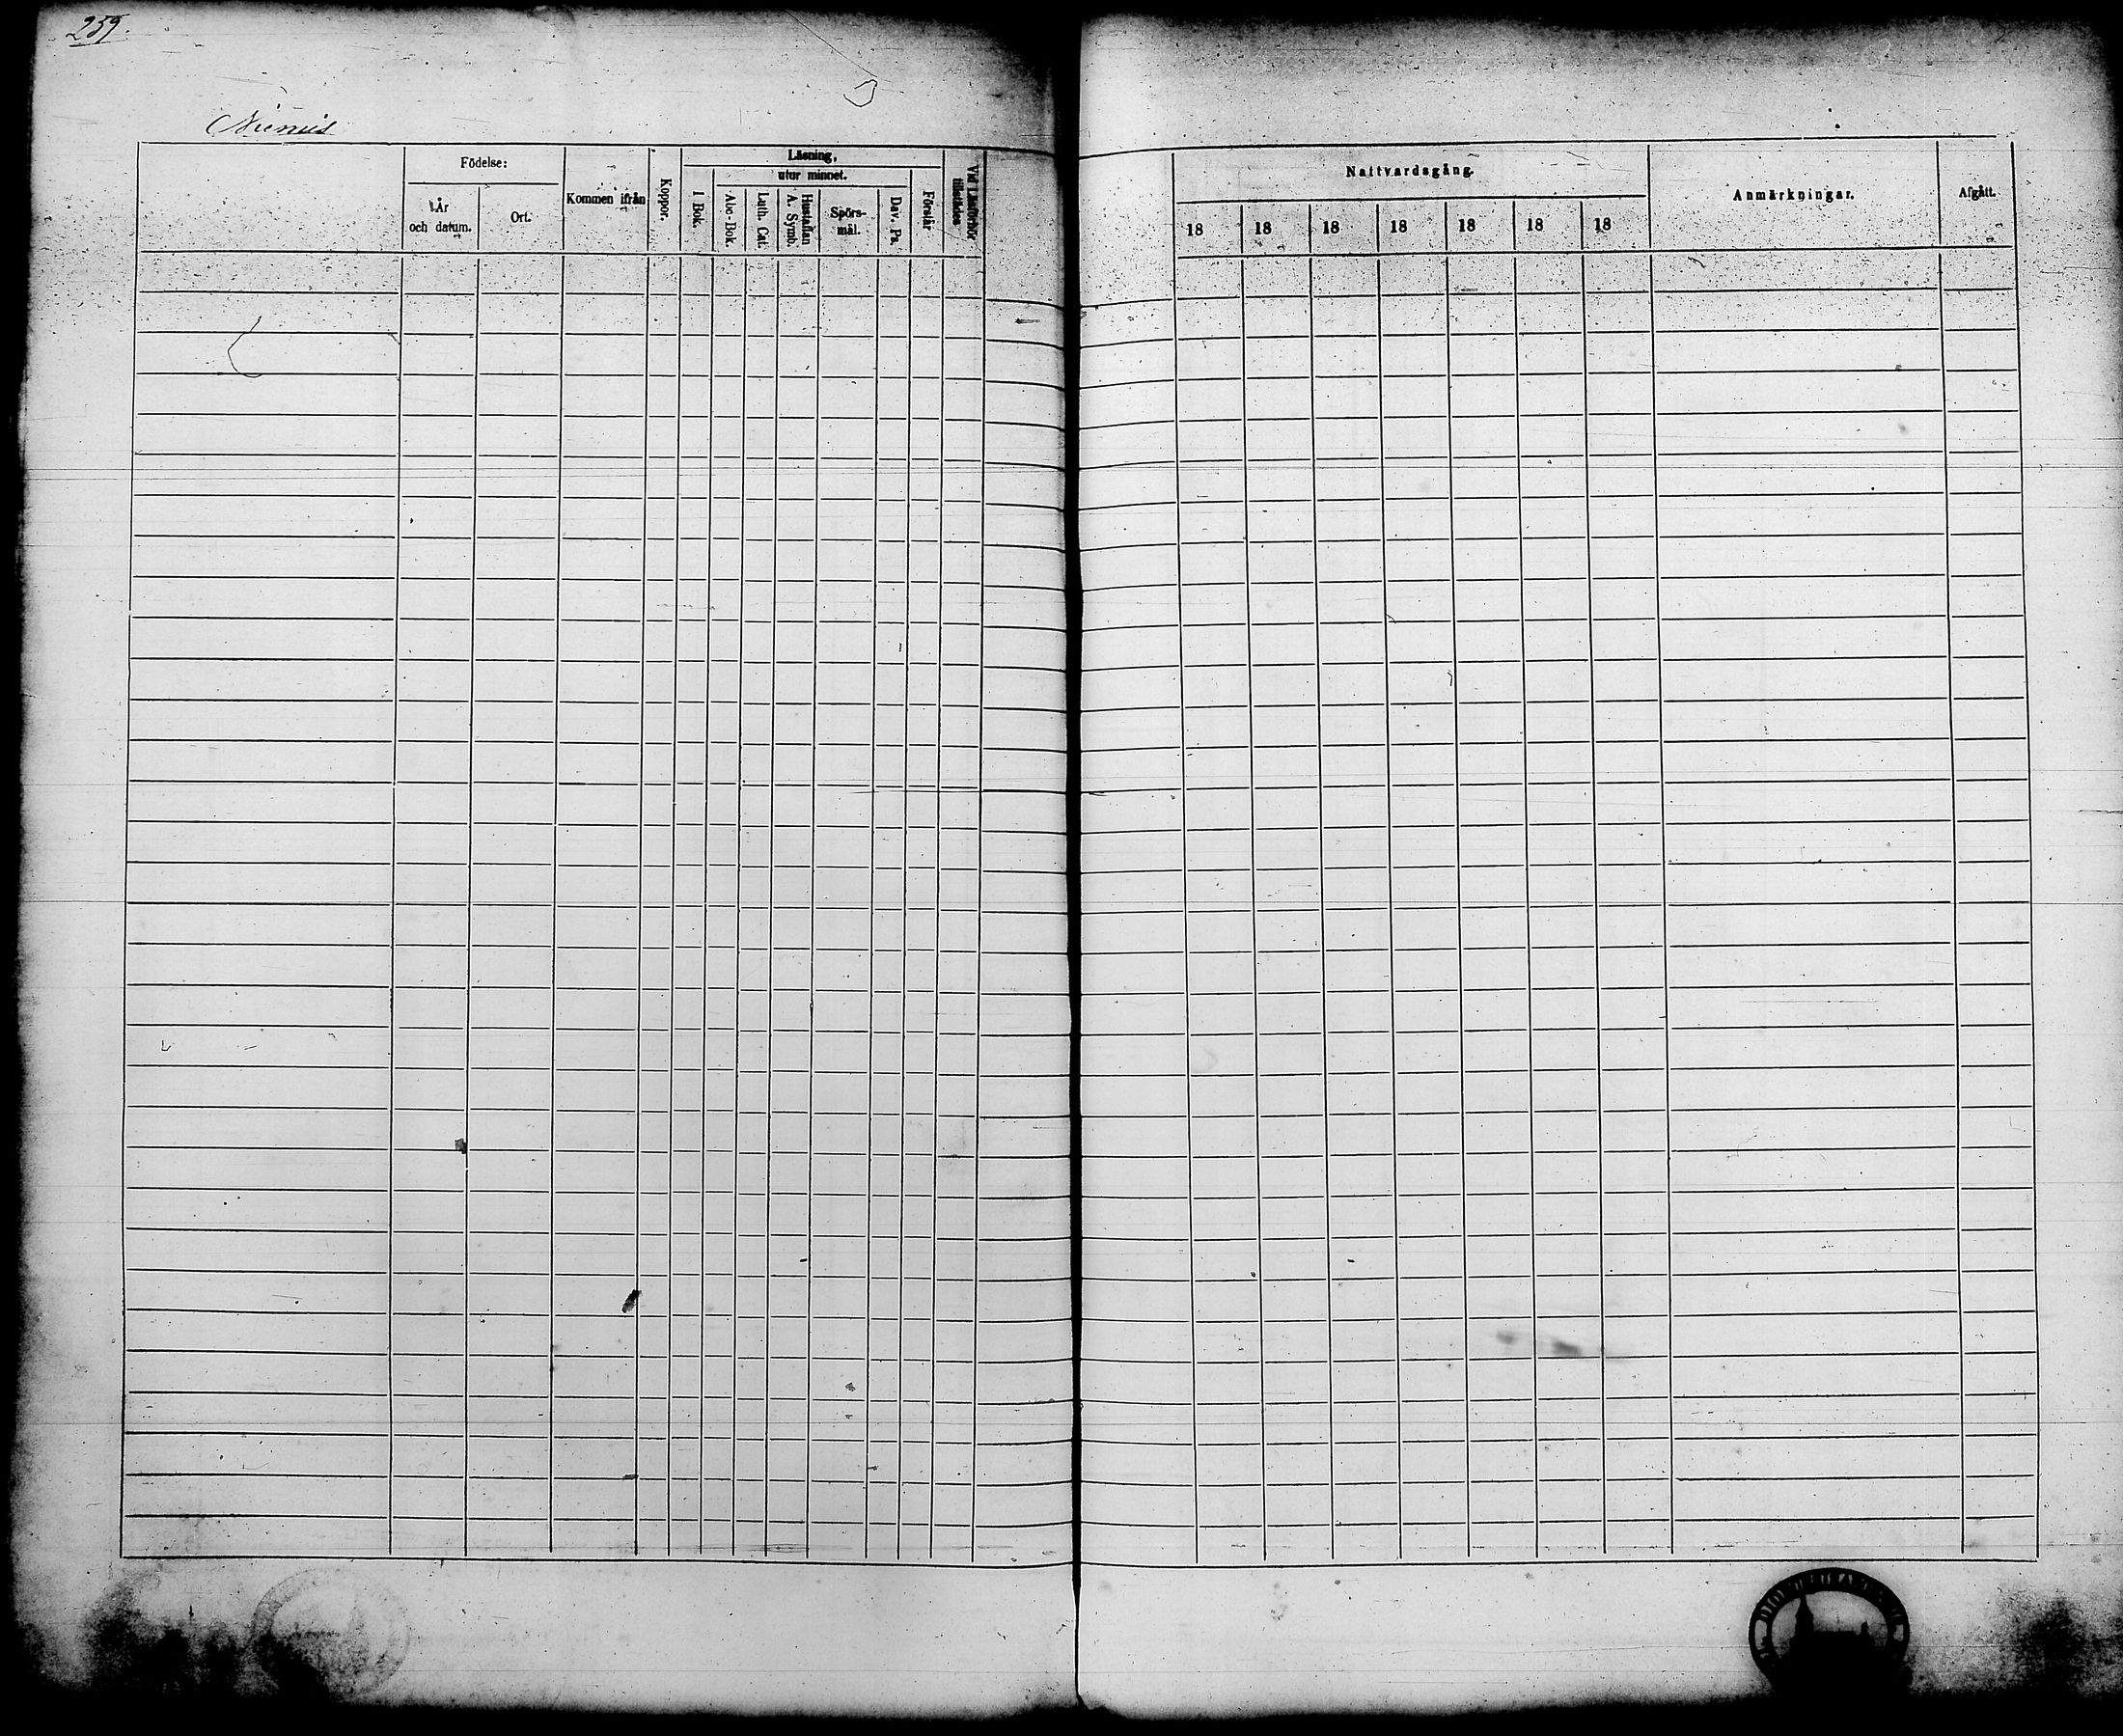 259.
Niemis
Födelse:
År och datum.
Ort.
Kommen ifrån
Koppor.
Läsning,
utur minnet.
I Bok.
Abc-Bok.
Luth. Cat.
Hustaflan
A. Symb.
Spörs-
mål.
Dav. Ps.
Förstår
Vid Läsförhör
tillstädes
Nattvardsgång.
18 18 18 18 18 18 18
Anmärkningar.
Afgått.